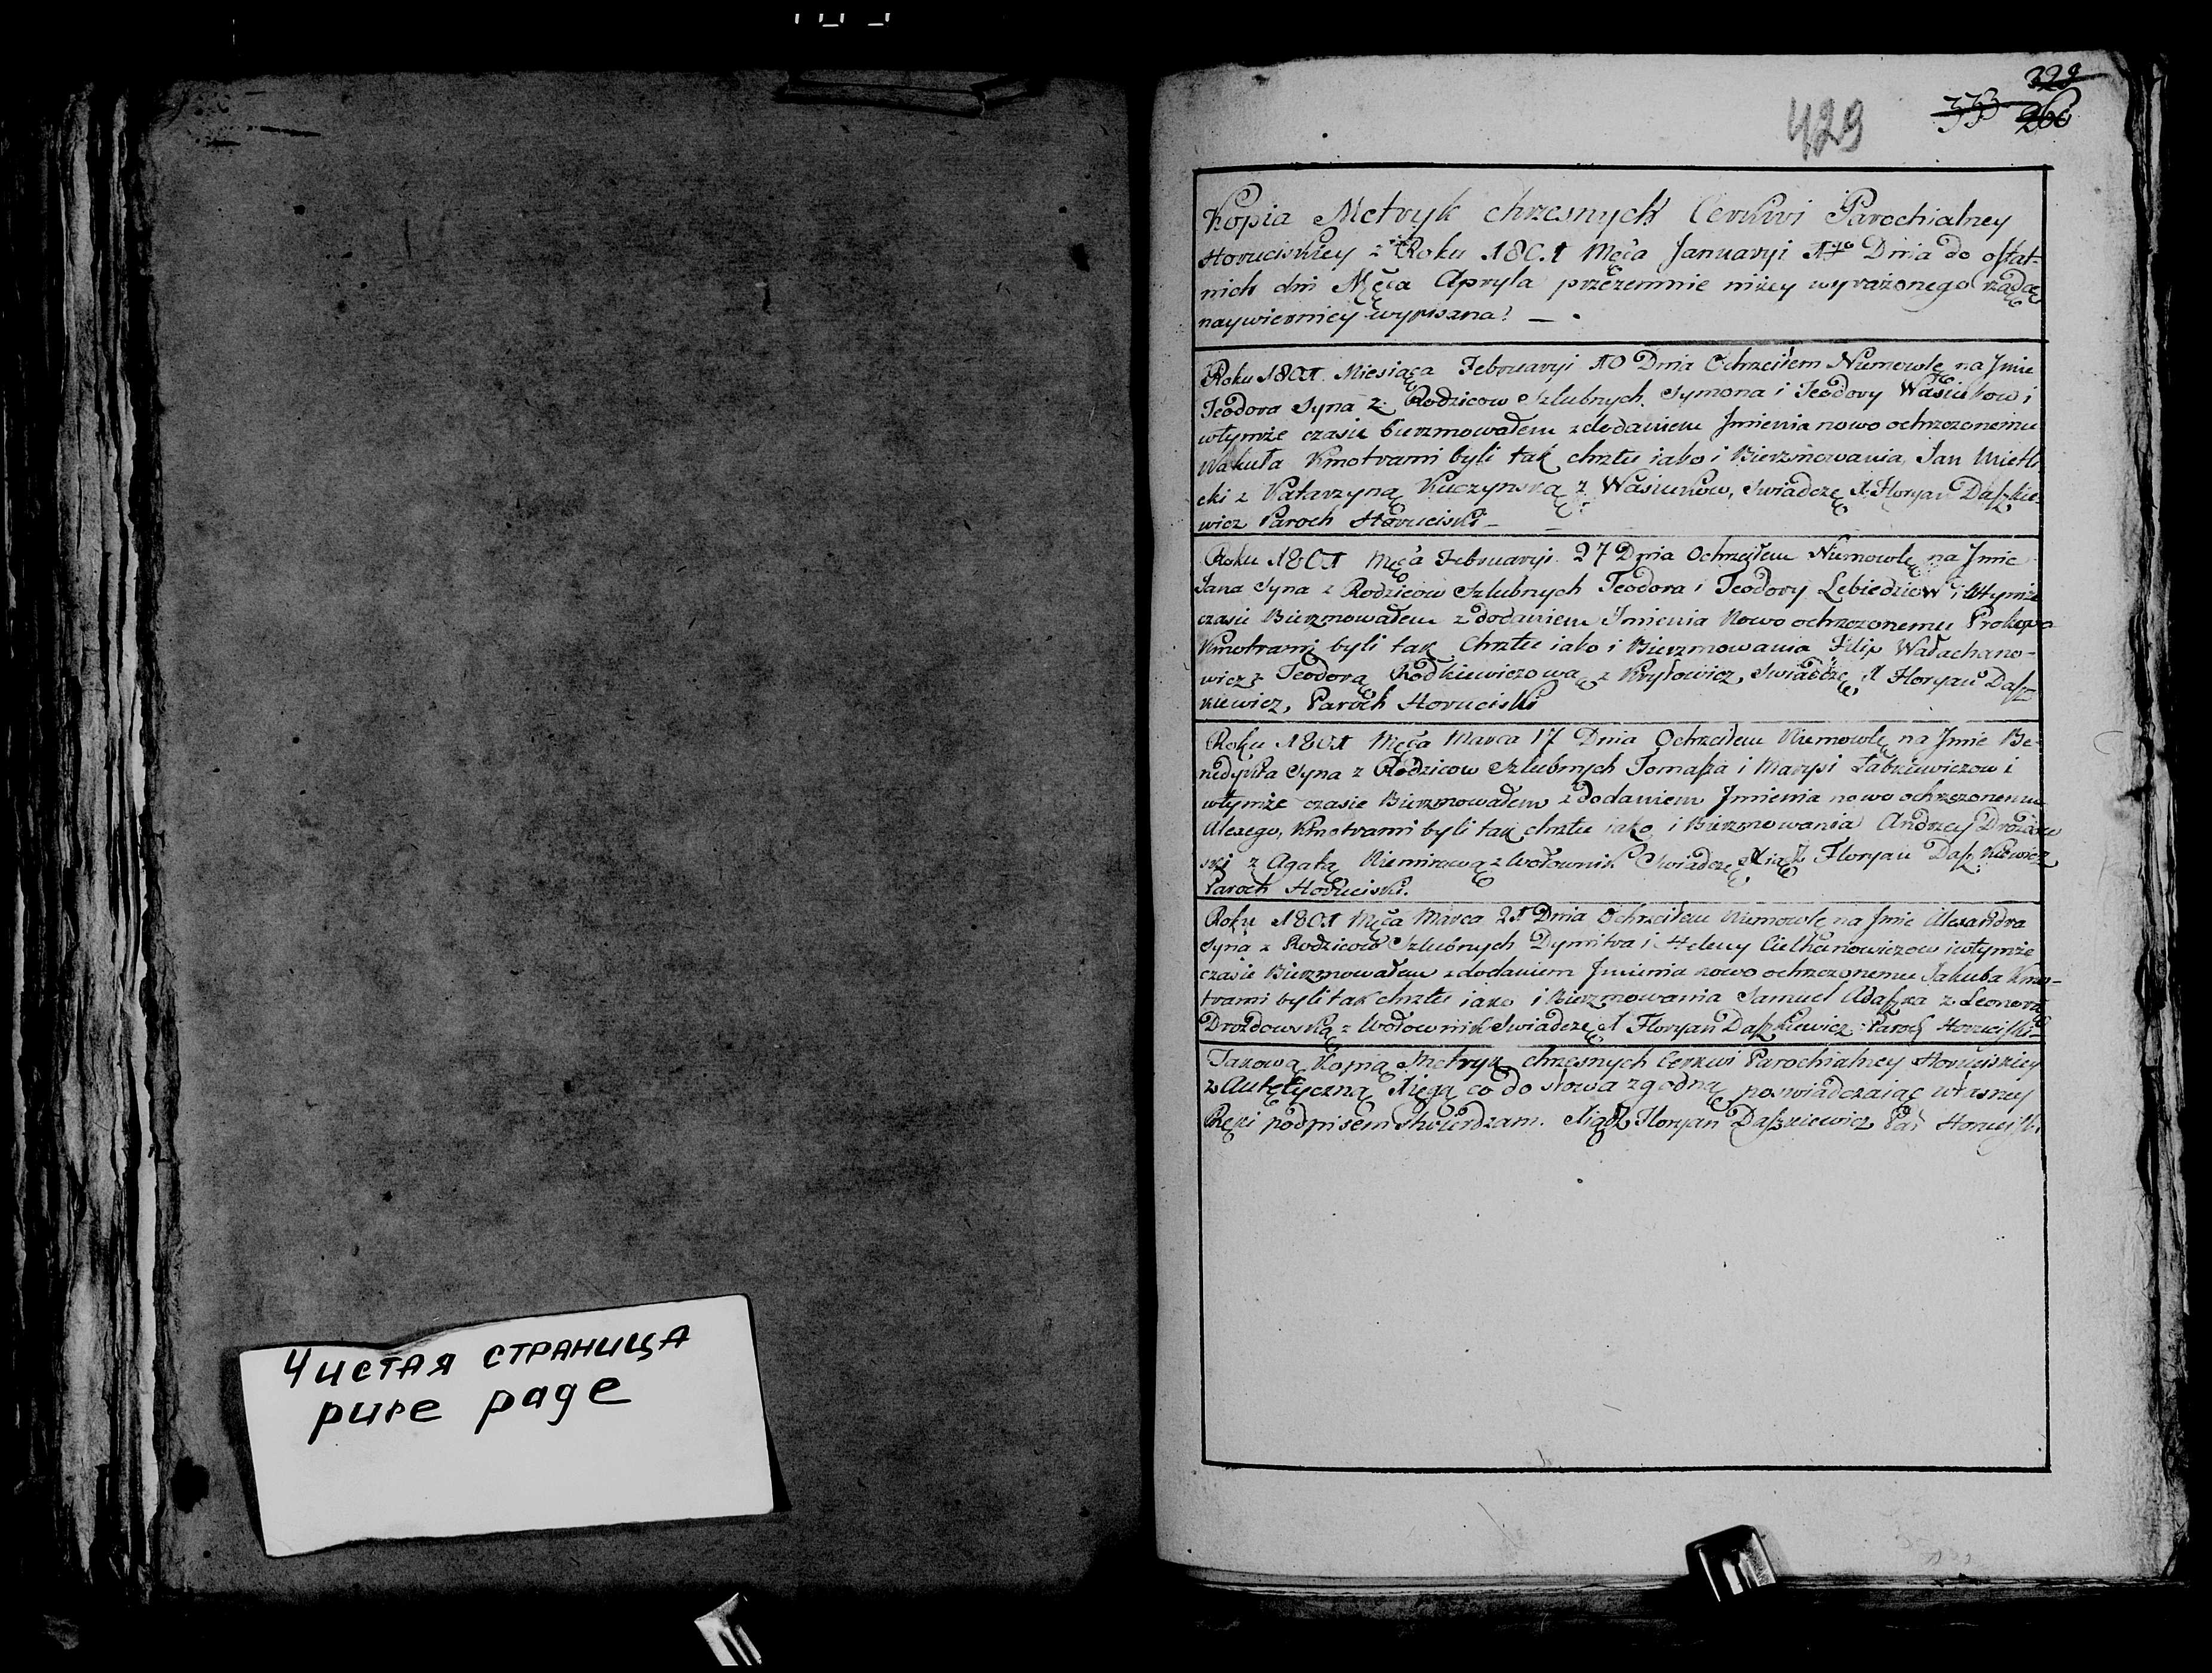 Чистая страница
pure page
329
429 353 266
Kopia Metryk chrzesnych Cerkwi Parochialney
Horuciskiey z Roku 1801 Męca Januaryi 1go Dnia do ostat-
nich dni Męca Apryla przezemnie niżey wyrażonego
naywierniey wypisana. — .
Roku 1801. Miesiąca Februaryi 10 Dnia Ochrzciłem Niemowlę na Jmie
Teodora Syna z Rodzicow Szlubnych Symona i Teodory Wasiukow i
wtymże czasie bierzmowałem z dodaniem Jmienia nowo ochrzczonemu
Wakuła Kmotrami byli tak chrztu iako i Bierzmowania, Jan
cki z Katarzyną Kuczynską z Wasiukow, Swiadczę X. Floryan Daszkie-
wicz Paroch Horuciski —
Roku 1801 Męca Februaryi 27 Dnia Ochrzciłem Niemowlę na Jmie
Jana Syna z Rodzicow Szlubnych Teodora i Teodory Lebiedziow i Wtymże
czasie Bierzmowałem z dodaniem Jmienia Nowo ochrzczonemu Prokopa
Kmotrami byli tak Chrztu iako i Bierzmowania Filip Wałachano-
wicz z Teodorą Rodkiewiczową z Kryłowicz, Swiadczę X Floryan Dasz-
kiewicz, Paroch Horuciski
Roku 1801 Męca Marca 17 Dnia Ochrzciłem Niemowlę na Jmie Be-
nedykta Syna z Rodzicow Szlubnych Tomasza i Marysi Łabkiewiczow i
wtymże czasie Bierzmowałem z dodaniem Jmienia nowo ochrzczonemu
Alexego, Kmotrami byli tak chrztu iako i Bierzmowania Andrzey Drozdow
ski z Agatą Niemirową z Wołownik Swiadczę Xiądz Floryan Daszkiewicz
Paroch Horuciski.
Roku 1801 Męca Marca 21 Dnia Ochrzciłem Niemowlę na Jmie Alexandra
Syna z Rodzicow Szlubnych Dymitra i Heleny Cielhanowiczow iwtymże
czasie Bierzmowałem z dodaniem Jmienia nowo ochrzczonemu Jakuba Kmo-
trami byli tak chrztu iako i Bierzmowania Samuel Adaszka z Leonorą
Drozdowską z Wołownik Swiadczę X Floryan Daszkiewicz Paroch Horuciski —
Takową Kopią Metryk chrzesnych Cerkwi Parochialney Horuciskiey
z Autętyczną Xięgą co do słowa zgodną poswiadczaiąc własney
Ręki podpisem stwierdzam. Xiądz Floryan Daszkiewicz Par Horuciski